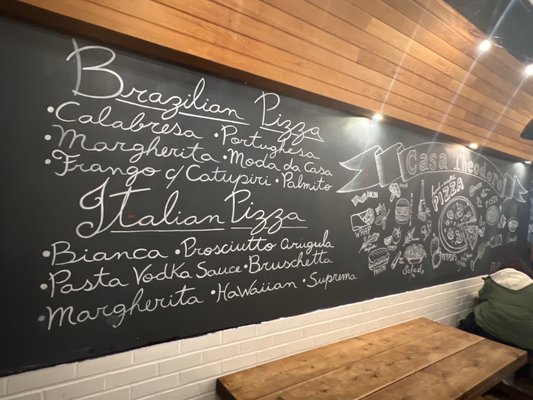 Brazilian Pizza
•Calabresa •Portughesa
•Margherita •Moda da Casa
•Frango c/ Catupiri •Palmito
Italian Pizza
•Bianca •Prosciutto Arugula
•Pasta Vodka Sauce •Bruschetta
•Margherita •Hawaiian •Suprema
Casa Theodoro
PIZZA
WRAP
SALAD